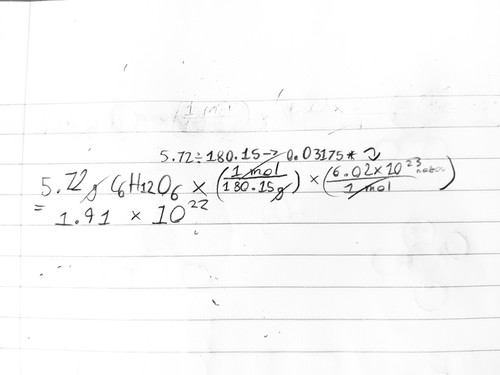 5.72÷180.15→ 0.03175*
5.72g C6H12O6 × (1 mol / 180.15g) × (6.02×10^23 / 1 mol)
= 1.91 × 10^22